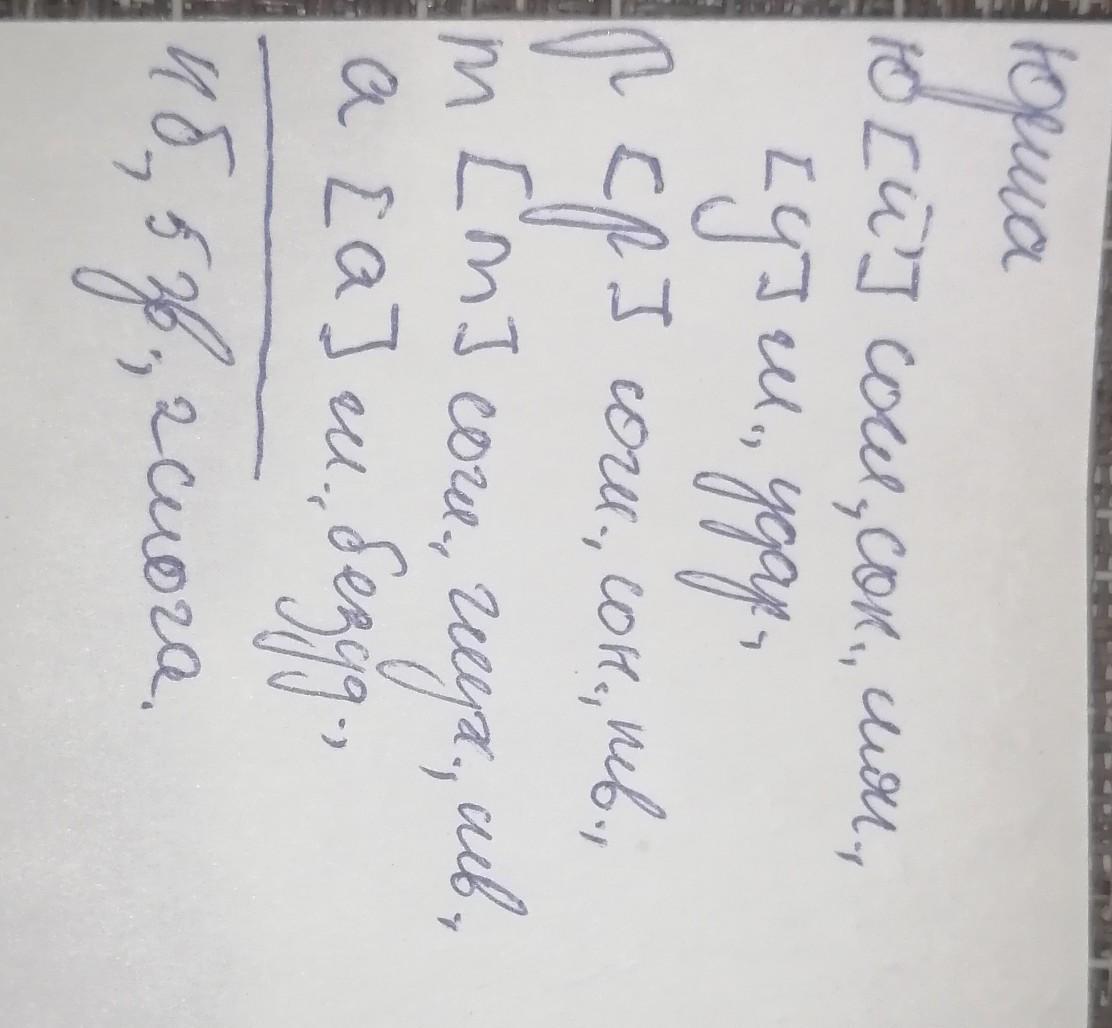 Юрта
ю [й'] согл., сон., мягк.,
[у] гл., удар.,
р [р] согл., сон., тв.,
т [т] согл., глух., тв.,
а [а] гл., безуд.,
4б., 5 зв., 2 слога.